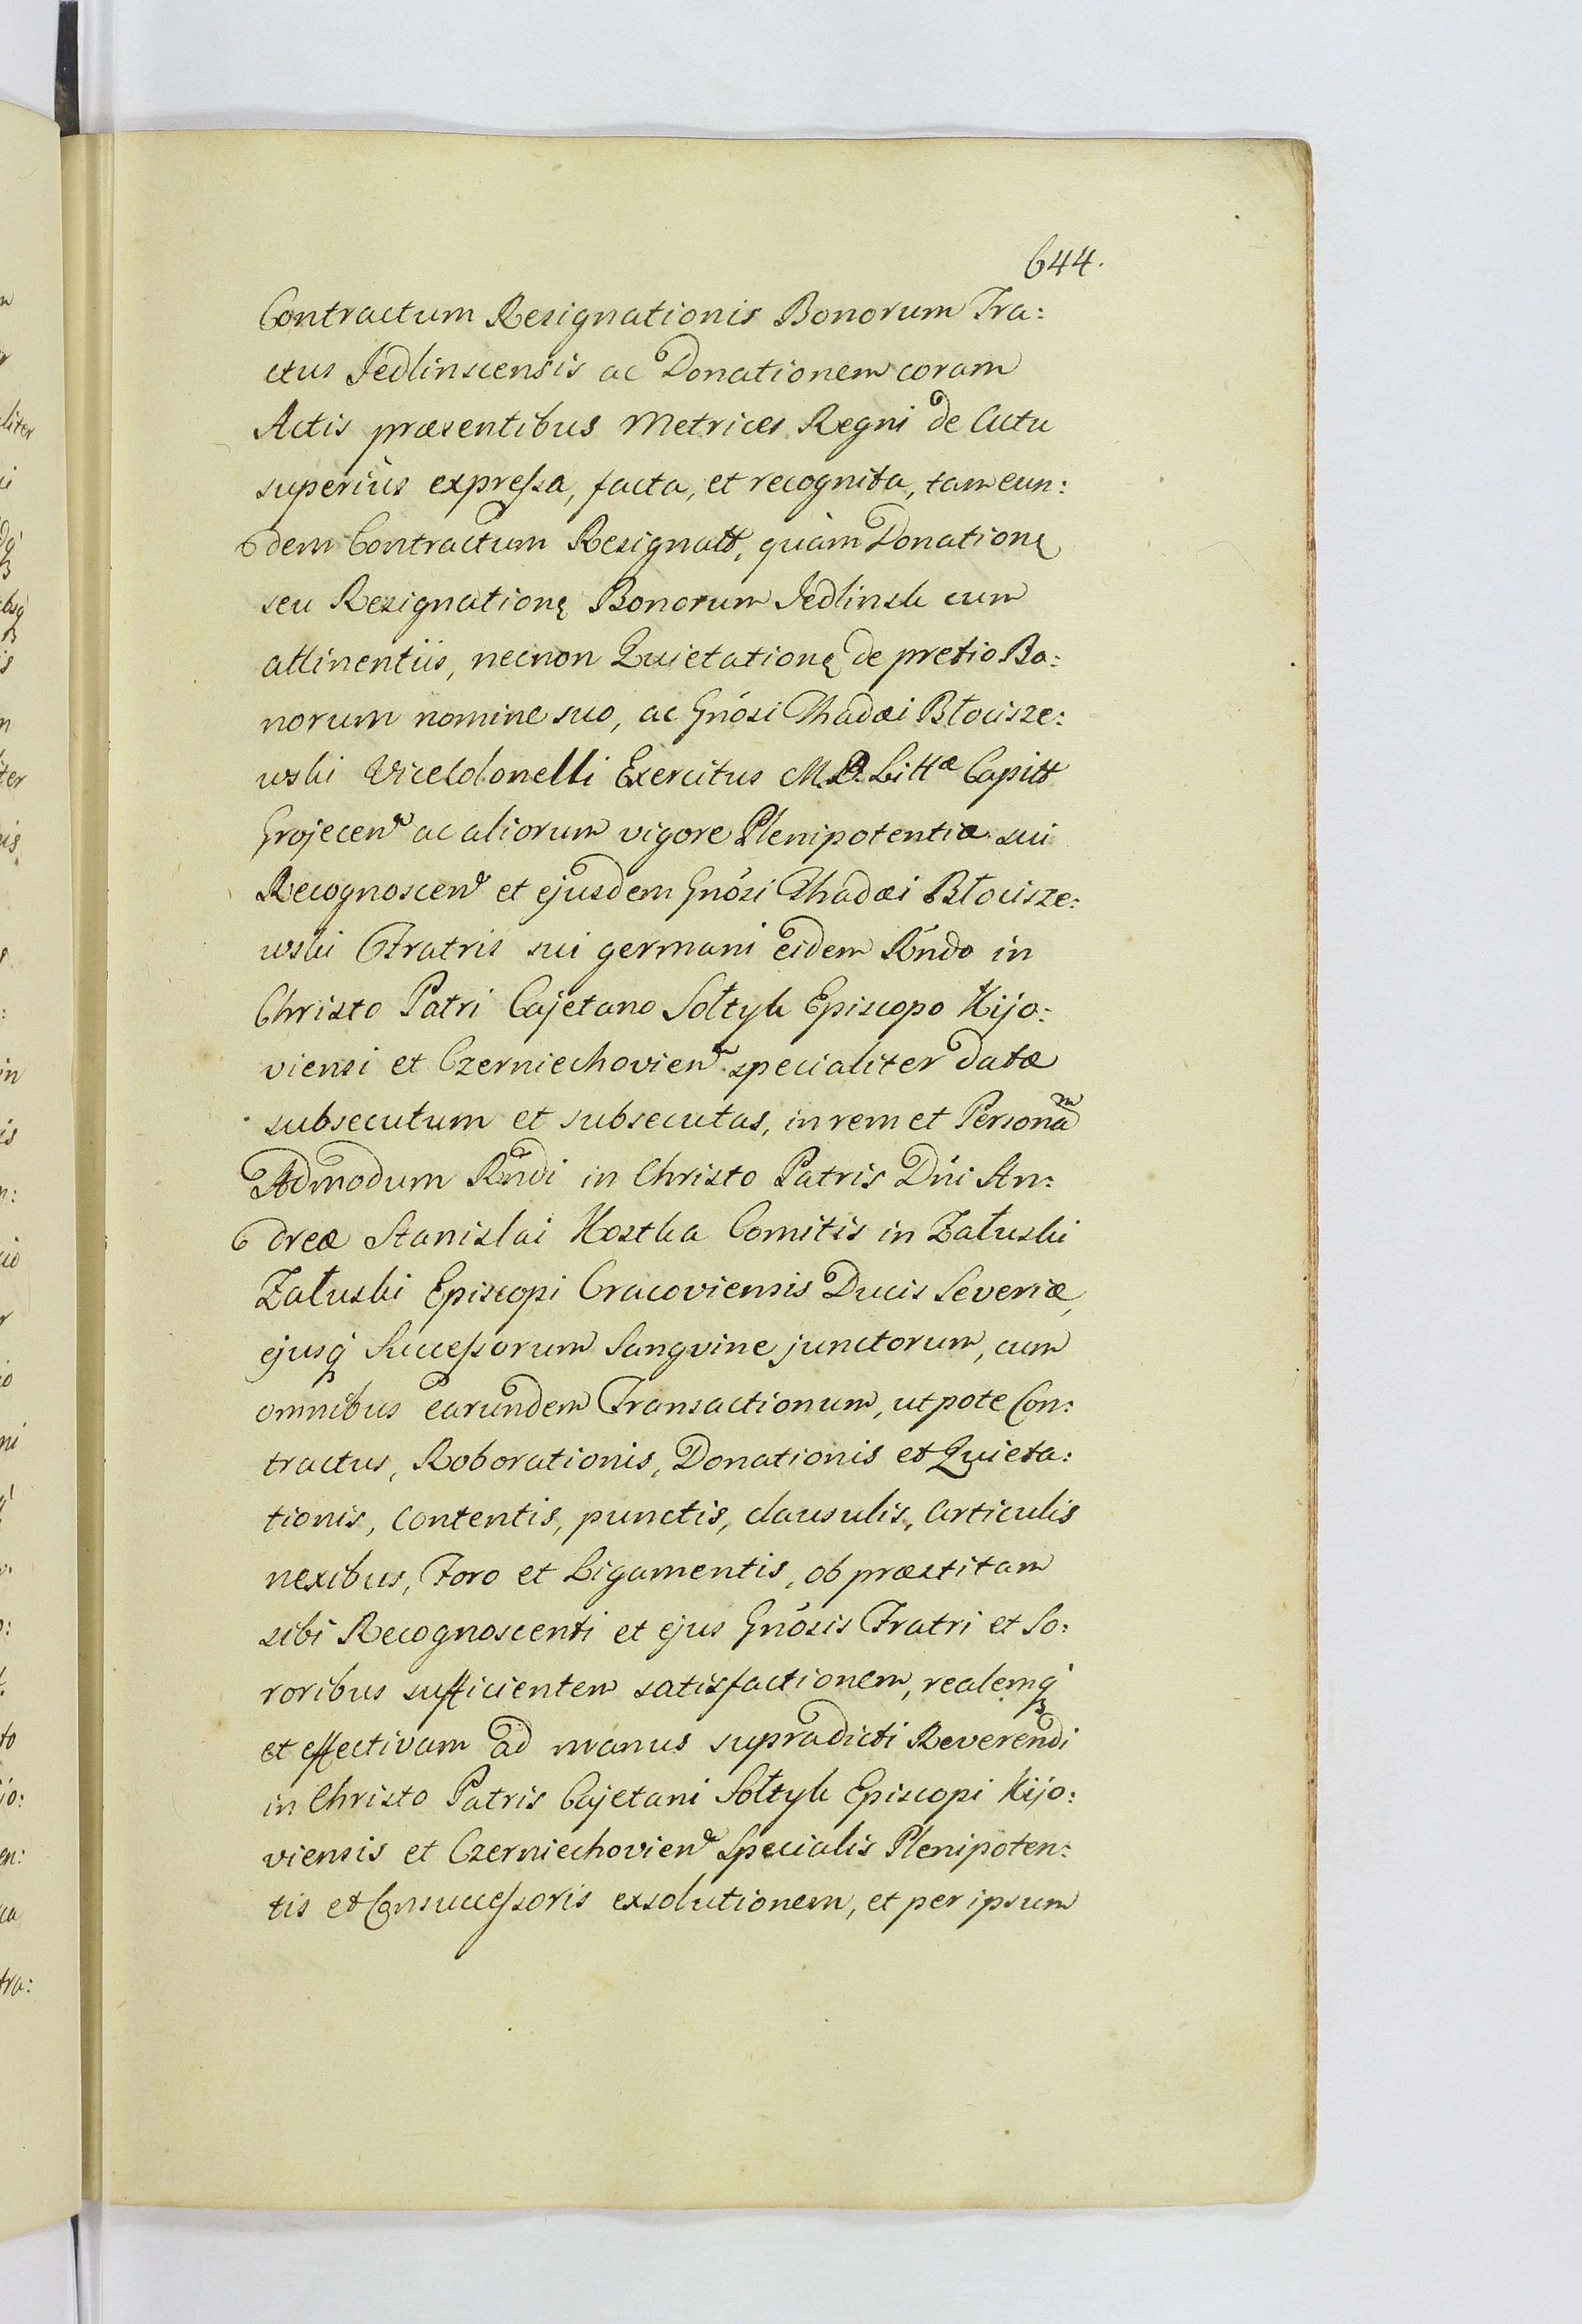 644.
Contractum Resignationis Bonorum Tra:
ctus Jedlinscensis ac Donationem coram
Actis præsentibus Metrices Regni de Actu
superiùs expressa, facta, et recognita, tam eun:
dem Contractum Resignatt, quàm Donationę
seu Resignationę Bonorum Jedlinsk cum
attinentiis, necnon Quietationę de pretio Bo:
norum nomine suo, ac Gnósi Thadæi Błocisze:
wski ViceColonelli Exercitus M. D. Littæ Capitt
Grojecen ac aliorum vigore Plenipotentiæ sui
Recognoscen et ejusdem Gnósi Thadæi Błocisze:
wski Fratris sui germani eidem Rńdo in
Christo Patri Cajetano Sołtyk Episcopo Kijo:
viensi et Czerniechovien specialiter datæ
subsecutum et subsecutas, in rem et Personam
Admodum Rńdi in Christo Patris Dńi An:
dreæ Stanislai Kostka Comitis in Załuski
Załuski Episcopi Cracoviensis Ducis Severiæ,
ejusq́ Successorum Sangvine junctorum, cum
omnibus earundem Transactionum, utpote Con:
tractus, Roborationis, Donationis et Quieta:
tionis, Contentis, punctis, clausulis, Articulis
nexibus, Foro et Ligamentis, ob præstitam
sibi Recognoscenti et ejus Gnósis Fratri et So:
roribus sufficientem satisfactionem, realemq́
et effectivam ad manus supradicti Reverendi
in Christo Patris Cajetani Sołtyk Episcopi Kijo:
viensis et Czerniechovien Specialis Plenipoten:
tis et Consuccessoris exsolutionem, et per ipsum